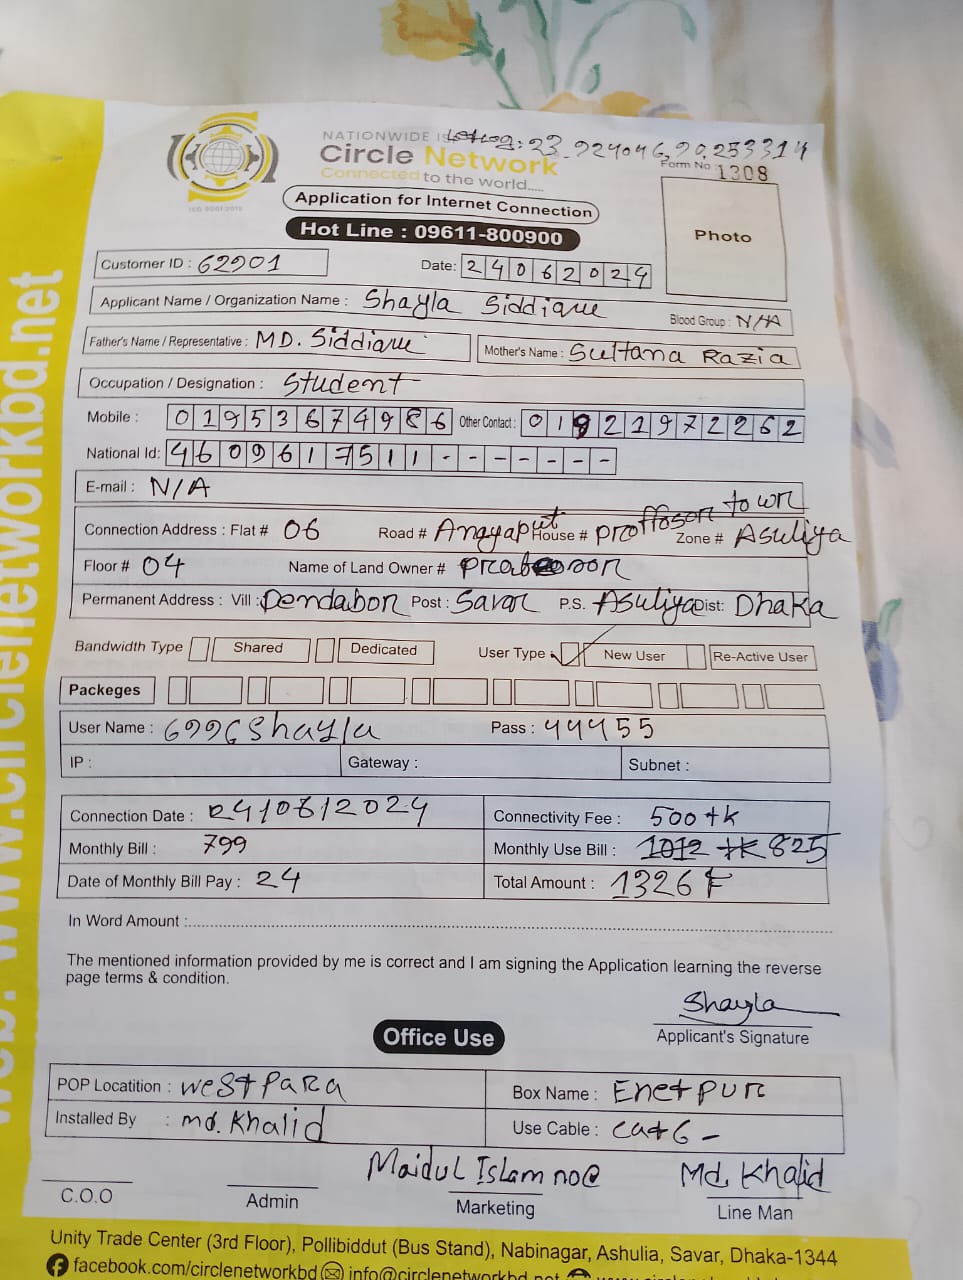 NATIONWIDE IS Lat Log: 23.924046, 90.253314
Circle Network
Form No 1308
Connected to the world.....
ISO 9001:2015
Application for Internet Connection
Photo
Hot Line : 09611-800900
Customer ID : 62901
Date: 24062024
Applicant Name / Organization Name : Shayla Siddique
Blood Group : N/A
Father's Name / Representative : MD. Siddique
Mother's Name : Sultana Razia
Occupation / Designation : Student
Mobile : 01953674986 Other Contact : 01921972262
National Id: 4609617511 - - - - - - -
E-mail : N/A
Connection Address : Flat # 06 Road # House # proffoson town Zone # Asuliya
Floor # 04 Name of Land Owner #
Permanent Address : Vill : Dendabor Post : Savar P.S. Asuliya Dist: Dhaka
Bandwidth Type Shared Dedicated User Type New User Re-Active User
Packeges
User Name : Pass : 44455
IP : Gateway : Subnet :
Connection Date : 24/06/2024 Connectivity Fee : 500 tk
Monthly Bill : 799 Monthly Use Bill : 1012 tk 825
Date of Monthly Bill Pay : 24 Total Amount : 1326
In Word Amount :
The mentioned information provided by me is correct and I am signing the Application learning the reverse
page terms & condition.
Shayla
Applicant's Signature
Office Use
POP Locatition : west Para Box Name : Enetpur
Installed By : md. Khalid Use Cable : cat6 -
Maidul Islam Md. Khalid
C.O.O Admin Marketing Line Man
Unity Trade Center (3rd Floor), Pollibiddut (Bus Stand), Nabinagar, Ashulia, Savar, Dhaka-1344
facebook.com/circlenetworkbd info@circlenetworkbd.net
web: www.circlenetworkbd.net